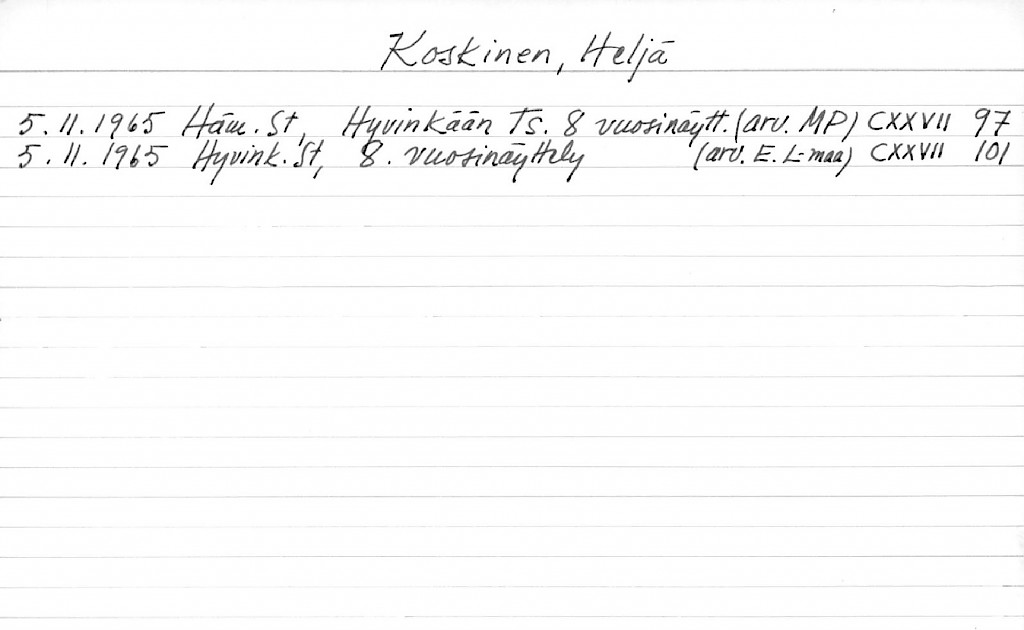 Koskinen, Heljä
5.11.1965 Häm. St, Hyvinkään Ts. 8 vuosinäytt. (arv. MP) CXXVII 97
5.11.1965 Hyvink. St, 8. vuosinäyttely (arv. E. L-maa) CXXVII 101